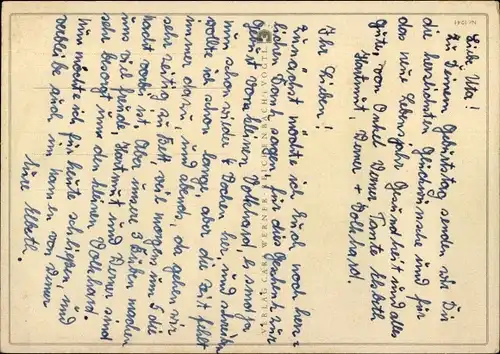 Liebe Uta!
Zu Deinem Geburtstag senden wir Dir
die herzlichsten Glückwünsche und für
das neue Lebensjahr Gesundheit und alles
Gute von Onkel Werner Tante Elsbeth
Hartmut, Werner + Volkhard.
Ihr Lieben!
Zunächst möchte ich Euch noch herz-
lichen Dank sagen, für das Geschenk zur
Geburt vom kleinen Volkhard. Es sind ja
nun schon wieder 4 Wochen her, und schreiben
wollte ich schon lange, aber die Zeit fehlt
immer dazu, und abends, da gehen wir
sehr zeitig zu Bett, weil morgens um 5 die
Nacht vorbei ist. Aber unsere 3 Buben machen
uns viel Freude, Hartmut und Werner sind
sehr besorgt um den kleinen Volkhard.
Nun möchte ich für heute schließen, und
verbleibe auch im Namen von Werner
Eure Elsbeth.
VERLAG CARL WERNER, REICHENBACH VOGTL